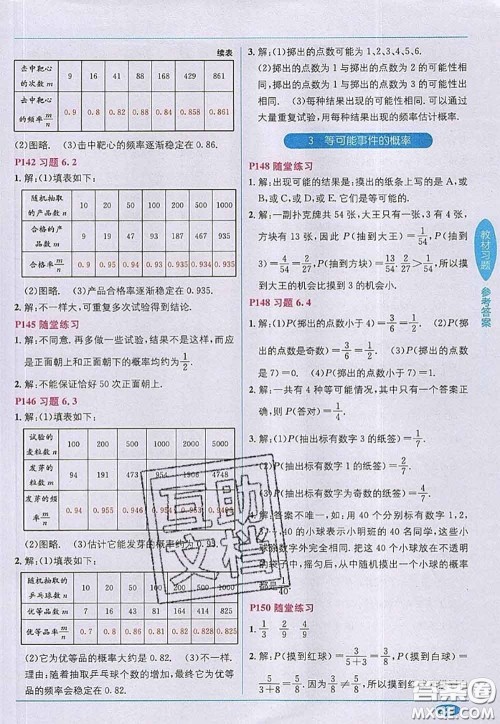 续表
击中靶心的次数m 9 16 41 88 168 429 861
击中靶心的频率m/n 0.9 0.8 0.82 0.88 0.84 0.858 0.861
(2)图略. (3)击中靶心的频率逐渐稳定在 0.86.
P142 习题 6.2
1. 解:(1)填表如下:
随机抽取的产品数 n 10 20 50 100 200 500 1000
合格的产品数 m 9 19 47 93 187 467 935
合格的频率m/n 0.9 0.95 0.94 0.93 0.935 0.934 0.935
(2)图略. (3)产品合格率逐渐稳定在 0.935.
2. 解:不一样大,可重复多次试验得到结论.
P145 随堂练习
1. 解:不同意. 再多做一些试验,结果不是这样,
而是正面朝上和正面朝下的概率均约为1/2.
2. 解:不能保证恰好 50 次正面朝上.
P146 习题 6.3
1. 解:(1)填表如下:
试验的麦粒数n 100 200 500 1000 2000 5000
发芽的粒数m 94 187 473 954 1906 4748
发芽的频率m/n 0.94
(2)图略. (3)估计它能发芽的概率约为
随机抽取的乒乓球数n 10 20 50 100 200 500 1000
优等品数m 7 16 43 81 164 414 825
优等品率m/n 0.7 0.8 0.86 0.81 0.82 0.828 0.825
(2)它为优等品的概率大约是 0.82. (3)不一样.
理由:随着抽取乒乓球个数的增大,优等品频
率逐渐稳定在 0.82.
3. 解:(1)掷出的点数可能为 1、2、3、4、5、6.
(2)掷出的点数为 1 与掷出的点数为 2 的可能性相
同,掷出的点数为 1 与掷出的点数为 3 的可能性也
相同. (3)每种结果出现的可能性相同. 可以通过
大量重复试验,用每种结果出现的频率估计概率.
3 等可能事件的概率
P148 随堂练习
1. 解:出现可能的结果是:摸出的纸条上写的是 A,或
B,或 C,或 D,或 E. 它们是等可能的.
2. 解:一副扑克牌共 54 张,大王只有一张,3 有 4 张,
方块有 13 张,因此 P(抽到大王)=1/54, P(抽到 3)
=4/54=2/27, P(抽到方块)=13/54.
P148 习题 6.4
1. 解:P(掷出的点数小于 4)=3/6=1/2; P(掷出的
点数是奇数)=3/6=1/2; P(掷出的点数是 7)=0;
P(掷出的点数小于 7)=6/6=1.
2. 解:一共有 4 种等可能情况,其中只有一种情况
中奖,故P(中奖)=1/4.
3. 解:(1)P(抽出标有数字 3 的纸签)=1/5.
(2)P(抽出标有数字 1 的纸签)=2/7.
(3)P(抽出标有数字为奇数的纸签)=
4. 解:答案不唯一,如:用 40 个分别标有数字 1,2,
40 的小球表示小明班的 40 名同学,这些小
球除数字外完全相同. 把 40 个小球放在不透明
的袋子中,摇匀后,从中随机摸出一个小球的概率
都是1/40
P150 随堂练习
1. 1/3 2/9 4/9
2. 解:P(摸到红球)=3/(5+3)=3/8, P(摸到白球)=
教材习题
参考答案
互助文档
答案圈
MXQE.COM